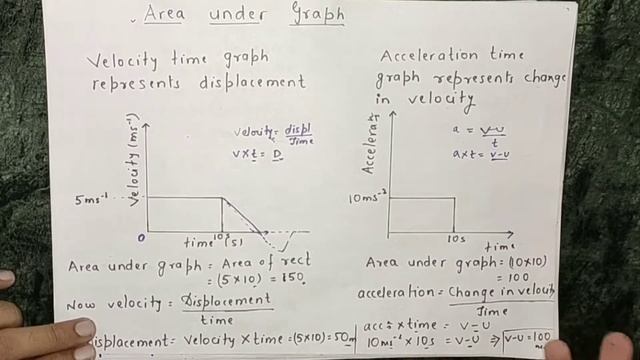 Area under Graph
Velocity time graph
represents displacement
Velocity (ms⁻¹)
velocity = displ/Time
v×t = D
5ms⁻¹
0
10s
time (s)
Area under graph = Area of rect
= (5×10) = 150
Now velocity = Displacement/time
isplacement = velocity × time = (5×10) = 50m
Acceleration time
graph represents change
in velocity
Accelerat
a = v-u/t
a×t = v-u
10ms⁻²
10s
time
Area under graph = (10×10)
= 100
acceleration = Change in velocity/Time
acc: × time = v-u
10ms⁻¹ × 10s = v-u ⇒ v-u = 100